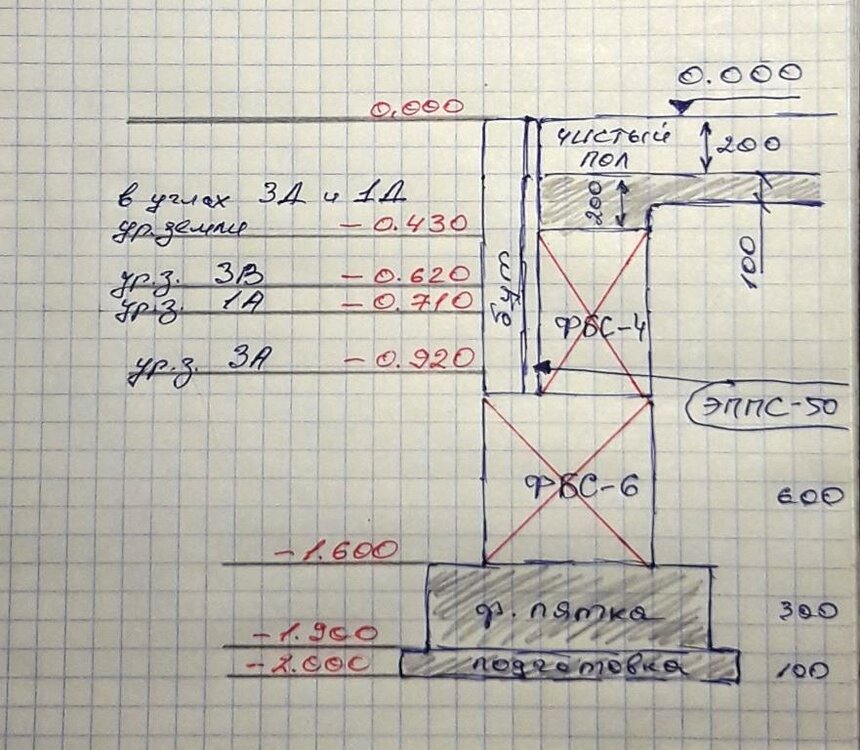 0.000
0.000
чистый
пол
200
в углах 3Д и 1Д
ур. земли -0.430
200
100
ур.з. 3В -0.620
ур.з. 1А -0.710
бут
ФБС-4
ур.з. 3А -0.920
ЭППС-50
ФБС-6
600
-1.600
ф. пятка
300
-1.900
-2.000
подготовка
100